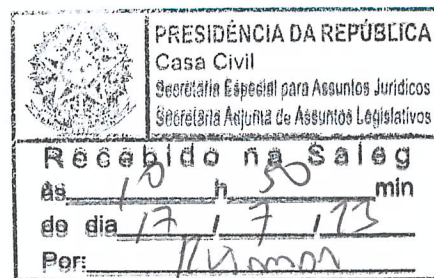 PRESIDÊNCIA DA REPÚBLICA
Casa Civil
Secretaria Especial para Assuntos Jurídicos
Secretaria Adjunta de Assuntos Legislativos
Recebido na Saleg
às 10 h 50 min
do dia 17 / 7 / 23
Por: